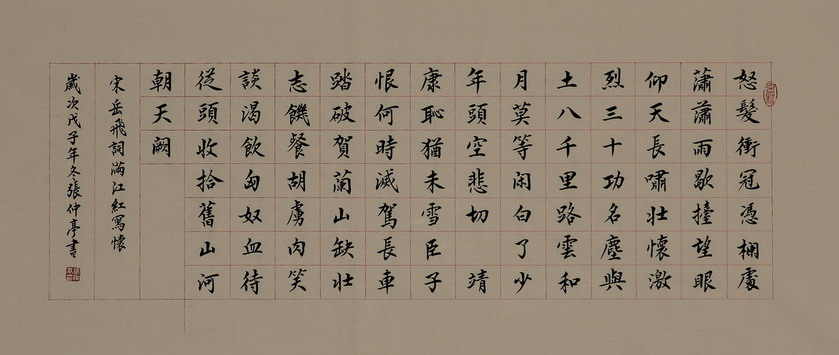 怒髮衝冠憑欄處
瀟瀟雨歇擡望眼
仰天長嘯壯懷激
烈三十功名塵與
土八千里路雲和
月莫等闲白了少
年頭空悲切 靖
康恥猶未雪臣子
恨何時滅駕長車
踏破賀蘭山缺壯
志饑餐胡虜肉笑
談渴飲匈奴血待
從頭收拾舊山河
朝天闕
宋岳飛詞滿江紅寫懷
歲次戊子年冬張仲亭書